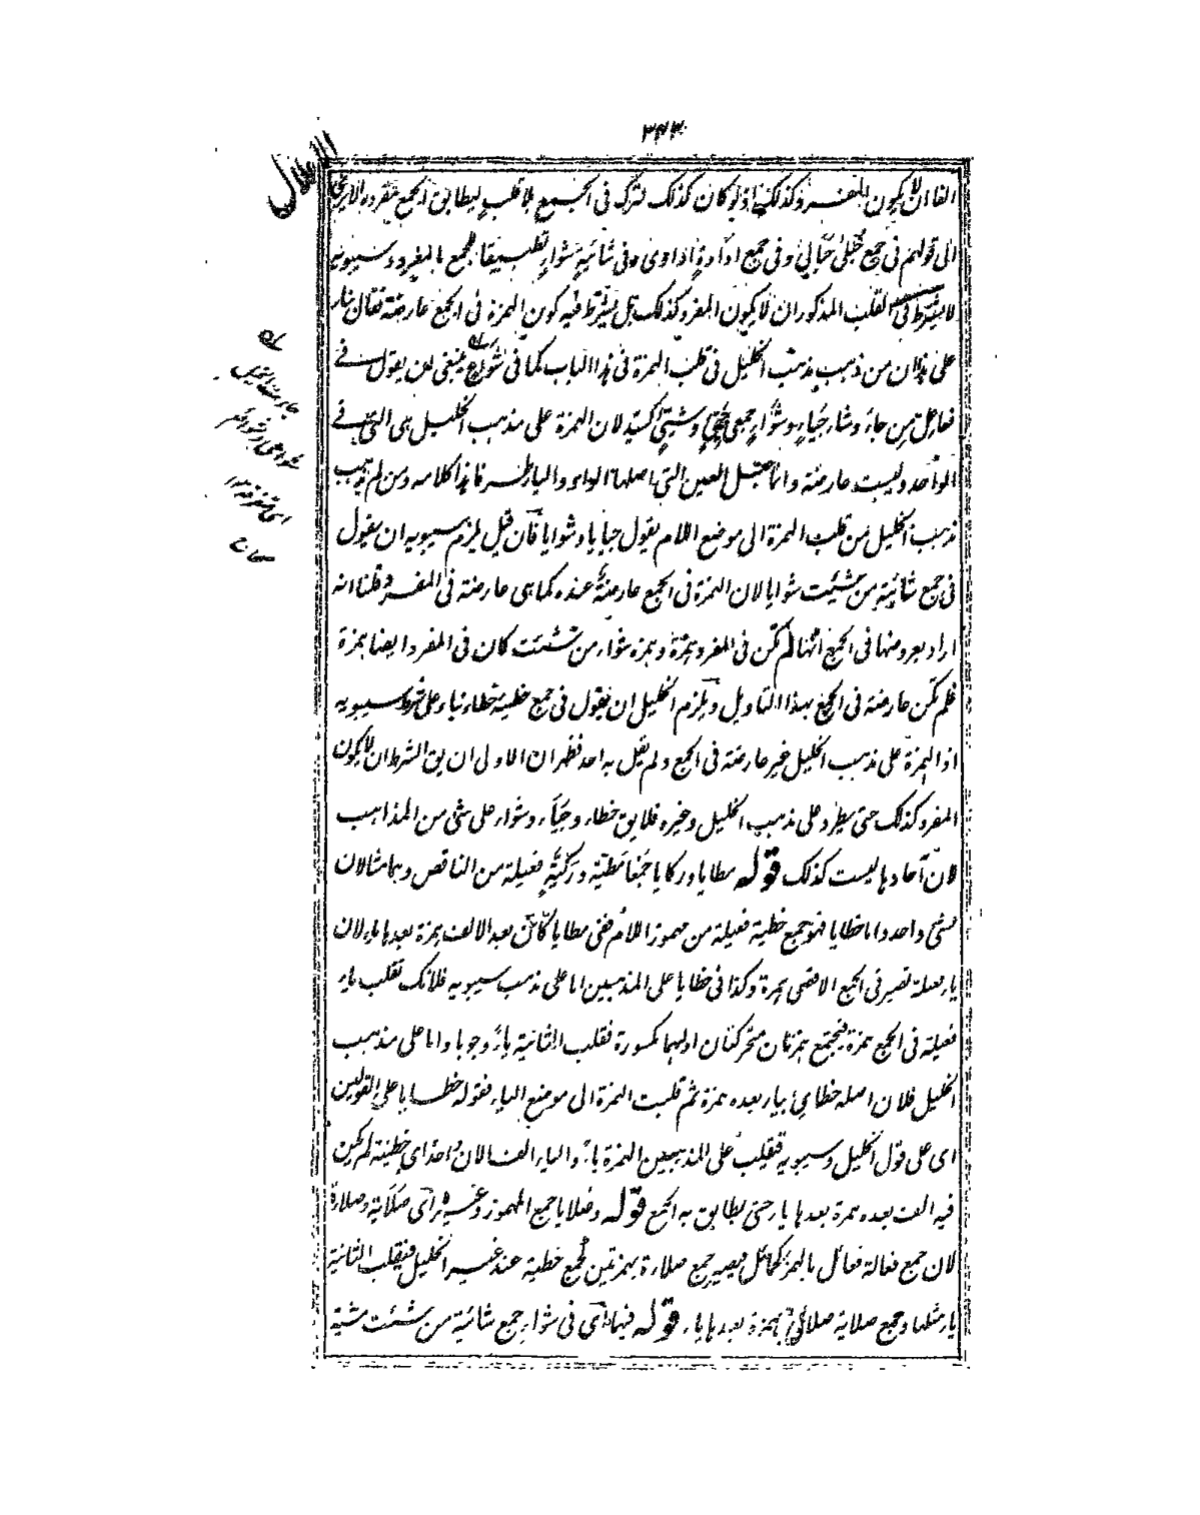 ٣٤٣
الاعلال
الفا ان لا يكون المفرد كذلك اذ لو كان كذلك لترك فى الجمع بلا قلب ليطابق الجمع مفرده الا يرى
الى قولهم فى جمع حبلى حبالى وفى جمع اداوة اداوى وفى شائية شواء تطبيقا للجمع بالمفرد وسيبويه
لا يشترط فى القلب المذكور ان لا يكون المفرد كذلك بل يشترط فيه كون الهمزة فى الجمع عارضة فقال بناء
على هذا ان من ذهب مذهب الخليل فى قلب الهمزة فى هذا الباب كما فى شواع ينبغى ان يقول فى
فاعل من جاء وشاء جياء وشواء جمعى لان الهمزة على مذهب الخليل هى التى فى
الواحد وليست عارضة وانما جعل العين التى اصلها الواو والياء طرفا هذا كلامه ومن لم يذهب
مذهب الخليل من قلب الهمزة الى موضع اللام يقول جيايا وشوايا فان قيل يلزم سيبويه ان يقول
فى جمع شائية من شئت شوايا لان الهمزة فى الجمع عارضة عنده كما هى عارضة فى المفرد قلنا انه
اراد بعروضها فى الجمع انها لم تكن فى المفرد همزة وهمزة شواء من شئت كان فى المفرد ايضا همزة
فلم تكن عارضة فى الجمع بهذا التاويل ويلزم الخليل ان يقول فى جمع خطيئة خطاء بناء على شرط سيبويه
اذ الهمزة على مذهب الخليل غير عارضة فى الجمع ولم يقل به احد فظهر ان الاولى ان يق الشرط ان لا يكون
المفرد كذلك حتى يطرد على مذهب الخليل وغيره فلا يق خطاء وجياء وشواء على شئ من المذاهب
لان آحادها ليست كذلك قوله مطايا وركايا جمعا مطية وركية فعيلة من الناقص وهما مثالان
لشئ واحد واما خطايا فهو جمع خطيئة فعيلة من مهموز اللام ففى مطايا كائن بعد الالف همزة بعدها ياء لان
ياء فعيلة تصير فى الجمع الاقصى همزة وكذا فى خطايا على المذهبين اما على مذهب سيبويه فلانك تقلب ياء
فعيلة فى الجمع همزة فيجتمع همزتان متحركتان اوليهما مكسورة فقلبت الثانية ياء وجوبا واما على مذهب
الخليل فلان اصله خطايئ بياء بعده همزة ثم قلبت الهمزة الى موضع الياء فقوله خطايا على القولين
اى على قول الخليل وسيبويه فقلبت على المذهبين الهمزة ياء والياء الفا لان واحده اى خطيئة لم يكن
فيه الف بعده همزة بعدها ياء حتى يطابق به الجمع قوله وصلايا جمع المهموز وغيره اى صلاية وصلاءة
لان جمع فعالة فعائل بالهمز كحمائل فيصير جمع صلاءة بهمزتين كجمع خطيئة عند غير الخليل فيقلب الثانية
ياء مثلها وجمع صلاية صلائى بهمزة بعدها ياء قوله فيهما اى فى شواء جمع شائية من شئت مشية